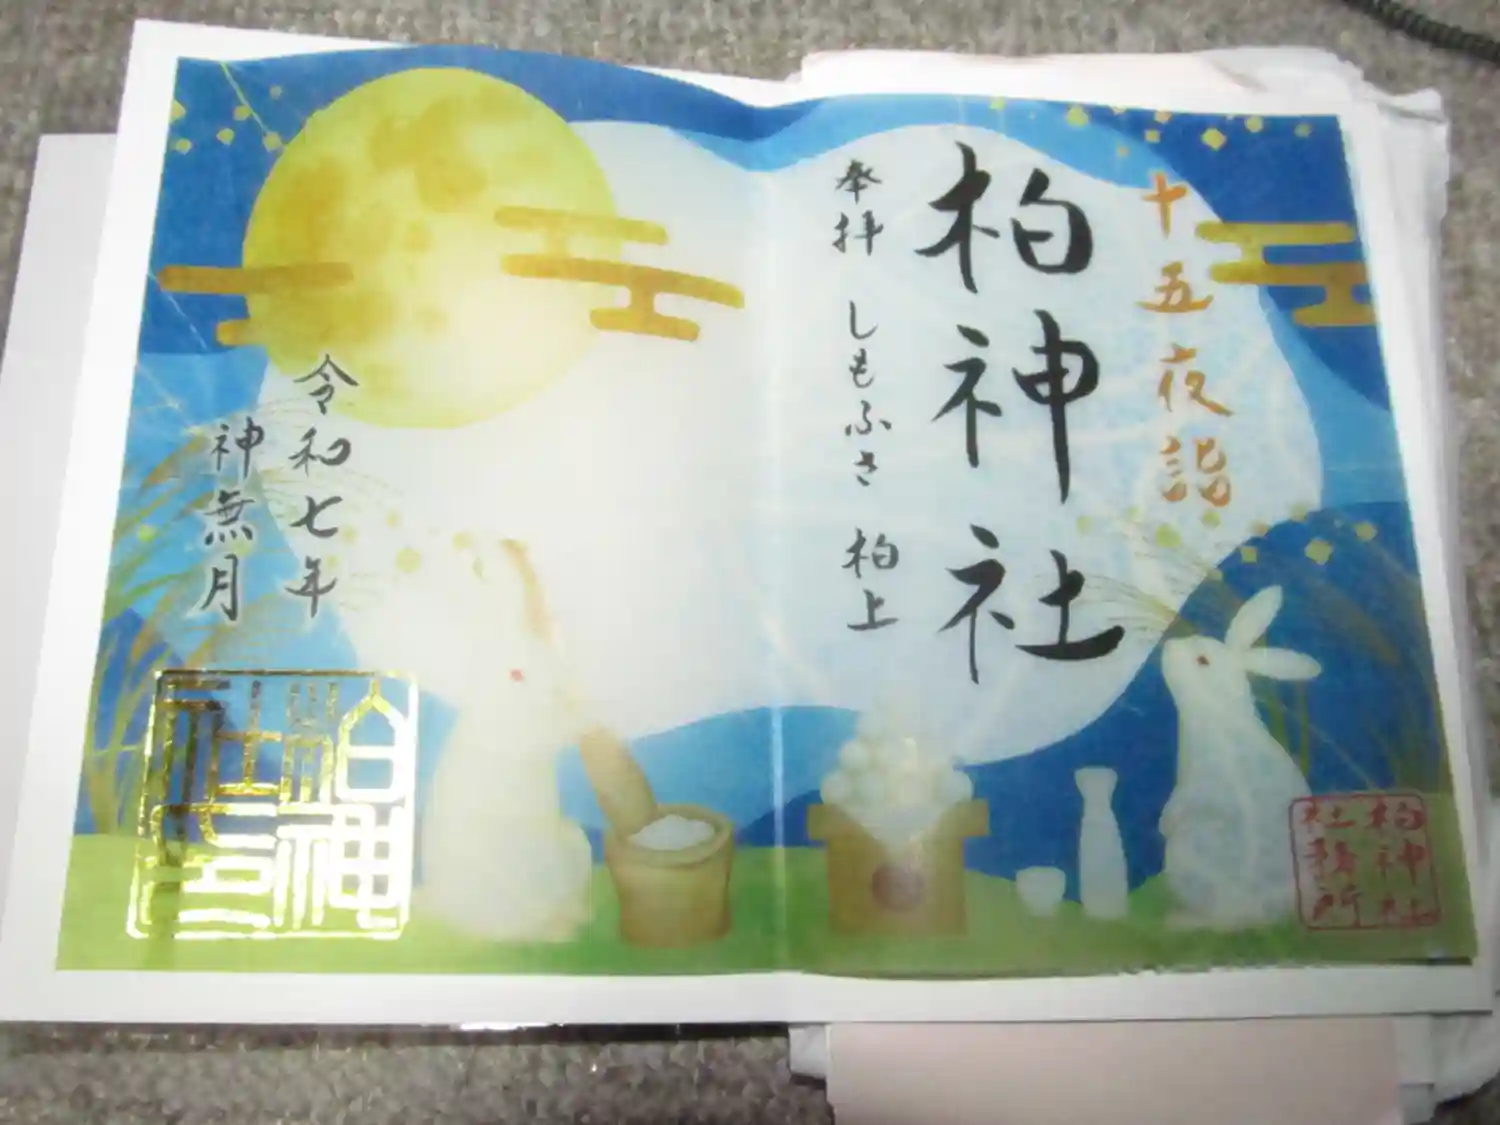 十五夜詣
柏神社
奉拝 しもふさ 柏上
令和七年
神無月
柏神
社印
柏神社
社務所